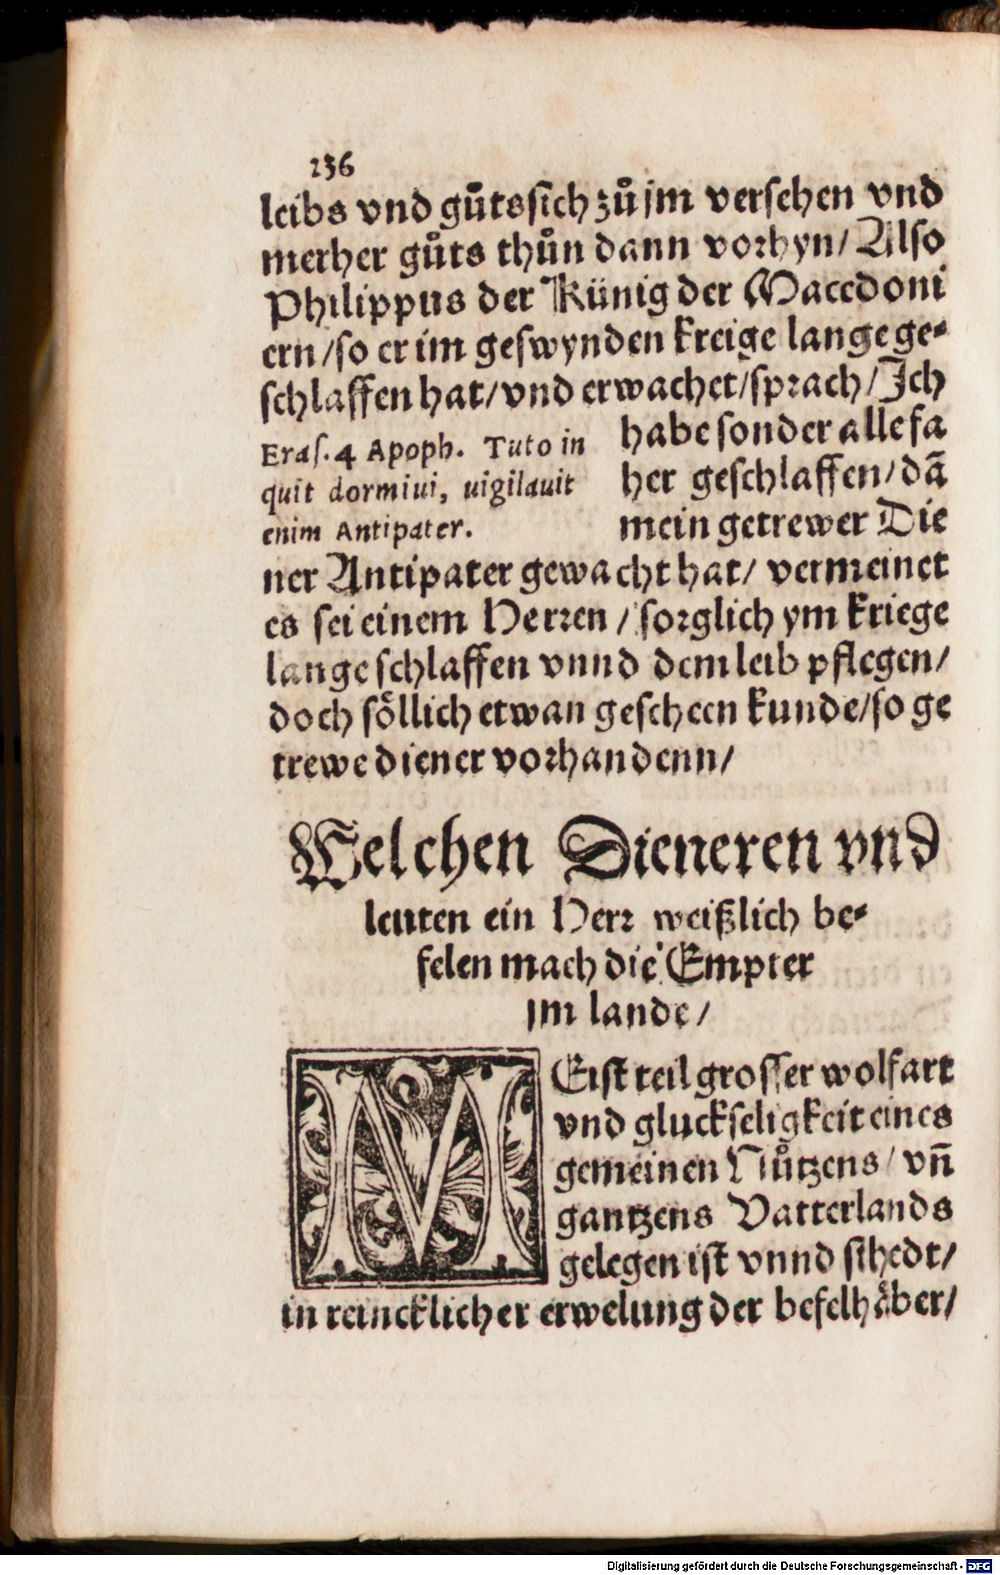 236
leibs vnd gůtssich zů jm versehen vnd
merher gůts thůn dann vorhyn/ Also
Philippus der Künig der Macedoni
ern/so er im geswynden kreige lange ge⸗
schlaffen hat/vnd erwachet/sprach/Ich
habe sonder alle fa
her geschlaffen/dā
mein getrewer Die
Eras. 4 Apoph. Tuto in
quit dormiui, uigilauit
enim Antipater.
ner Antipater gewacht hat/ vermeinet
es sei einem Herren / sorglich ym kriege
lange schlaffen vnnd dem leib pflegen/
doch söllich etwan gescheen kunde/so ge
trewe diener vorhandenn/
Welchen Dieneren vnd
leuten ein Herr weißlich be⸗
felen mach die Empter
jm lande/
MEist teil grosser wolfart
vnd gluckseligkeit eines
gemeinen Nůtzens/ vn̄
gantzens Vatterlands
gelegen ist vnnd sthedt/
in reincklicher erwelung der befelhāber/
Digitalisierung gefördert durch die Deutsche Forschungsgemeinschaft - DFG